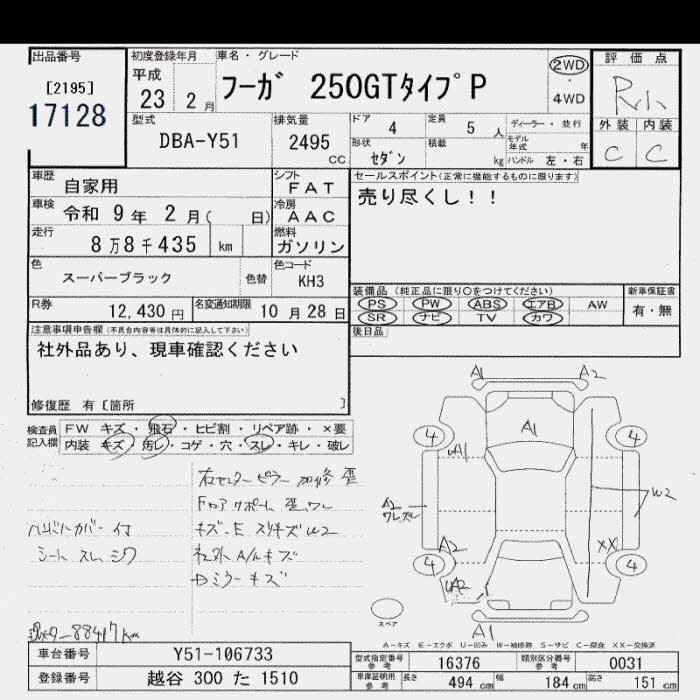 出品番号
[2195]
17128
初度登録年月
平成
23 2 月
車名・グレード
フーガ 250GTタイプP
2WD
・
4WD
評価点
R小
外装 内装
C C
型式
DBA-Y51
排気量
2495
CC
ドア
4
定員
5 人
ディーラー・並行
モデル年式 年
形状
セダン
積載
kg
ハンドル 左・右
車歴
自家用
シフト
FAT
車検
令和 9 年 2 月( 日)
冷房
AAC
走行
8万8千435 km
燃料
ガソリン
色
スーパーブラック
色替
色コード
KH3
R券
12,430 円
名変通知期限
10 月 28 日
セールスポイント(正常に機能するものに限ります)
売り尽くし!!
装備品 (純正品に限り○をつけてください)
PS PW ABS エアB AW
SR ナビ TV カワ
新車保証書
有・無
後日品
注意事項申告欄(不具合内容等は具体的に記入して下さい)
社外品あり、現車確認ください
修復歴 有〔箇所 〕
検査員記入欄
FW キズ・飛石・ヒビ割・リペア跡・×要
内装 キズ・汚レ・コゲ・穴・スレ・キレ・破レ
右センターピラー 加修 歪
キズ・E スリキズ W2
社外A/Wキズ
Dミラーキズ
ハンドルカバー付
シート スレ、シワ
A1 A2
A1
4 4
UA1
A2
W2
A2 XX
4 4
UA2
A1
スペア
A-キズ E-エクボ U-凹み W-補修跡 S-サビ C-腐食 XX-交換済
車台番号
参考
Y51-106733
登録番号
越谷 300 た 1510
型式指定番号
参考
16376
類別区分番号
参考
0031
車庫証明用
参考
長さ
494 cm
幅
184 cm
高さ
151 cm